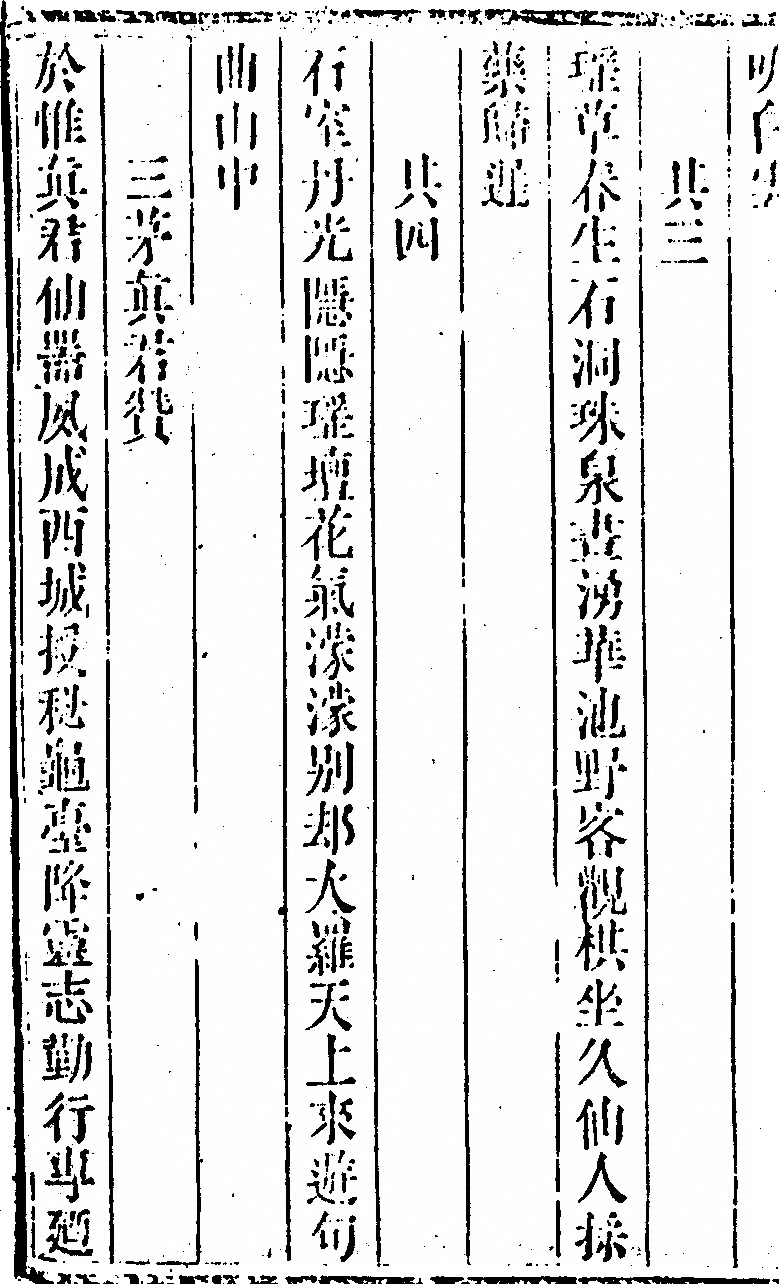 白雲
其三
瑤草春生石洞珠泉晝湧華池野客觀棋坐久仙人採
藥歸遲
其四
石室丹光隱隱瑤壇花氣濛濛別却大羅天上來遊句
曲山中
三茅眞君贊
於惟眞君仙器夙成西城授秘龜臺降靈志勤行專廻